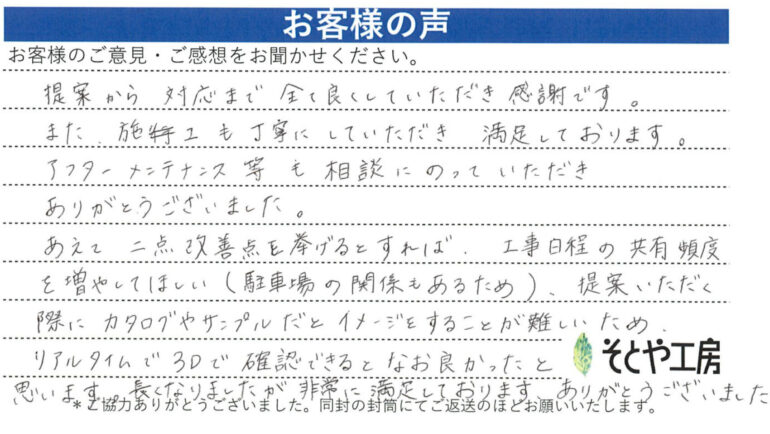 お客様の声
お客様のご意見・ご感想をお聞かせください。
提案から 対応まで 全て良くしていただき 感謝です。
また、施工も丁寧にしていただき 満足しております。
アフターメンテナンス等も相談にのっていただき
ありがとうございました。
あえて 二点改善点を挙げるとすれば、工事日程の共有頻度
を増やしてほしい(駐車場の関係もあるため)、提案いただく
際に カタログやサンプルだとイメージをすることが難しいため、
リアルタイムで3Dで確認できるとなお良かったと
そとや工房
思います。長くなりましたが非常に満足しております。ありがとうございました
*ご協力ありがとうございました。同封の封筒にてご返送のほどお願いいたします。